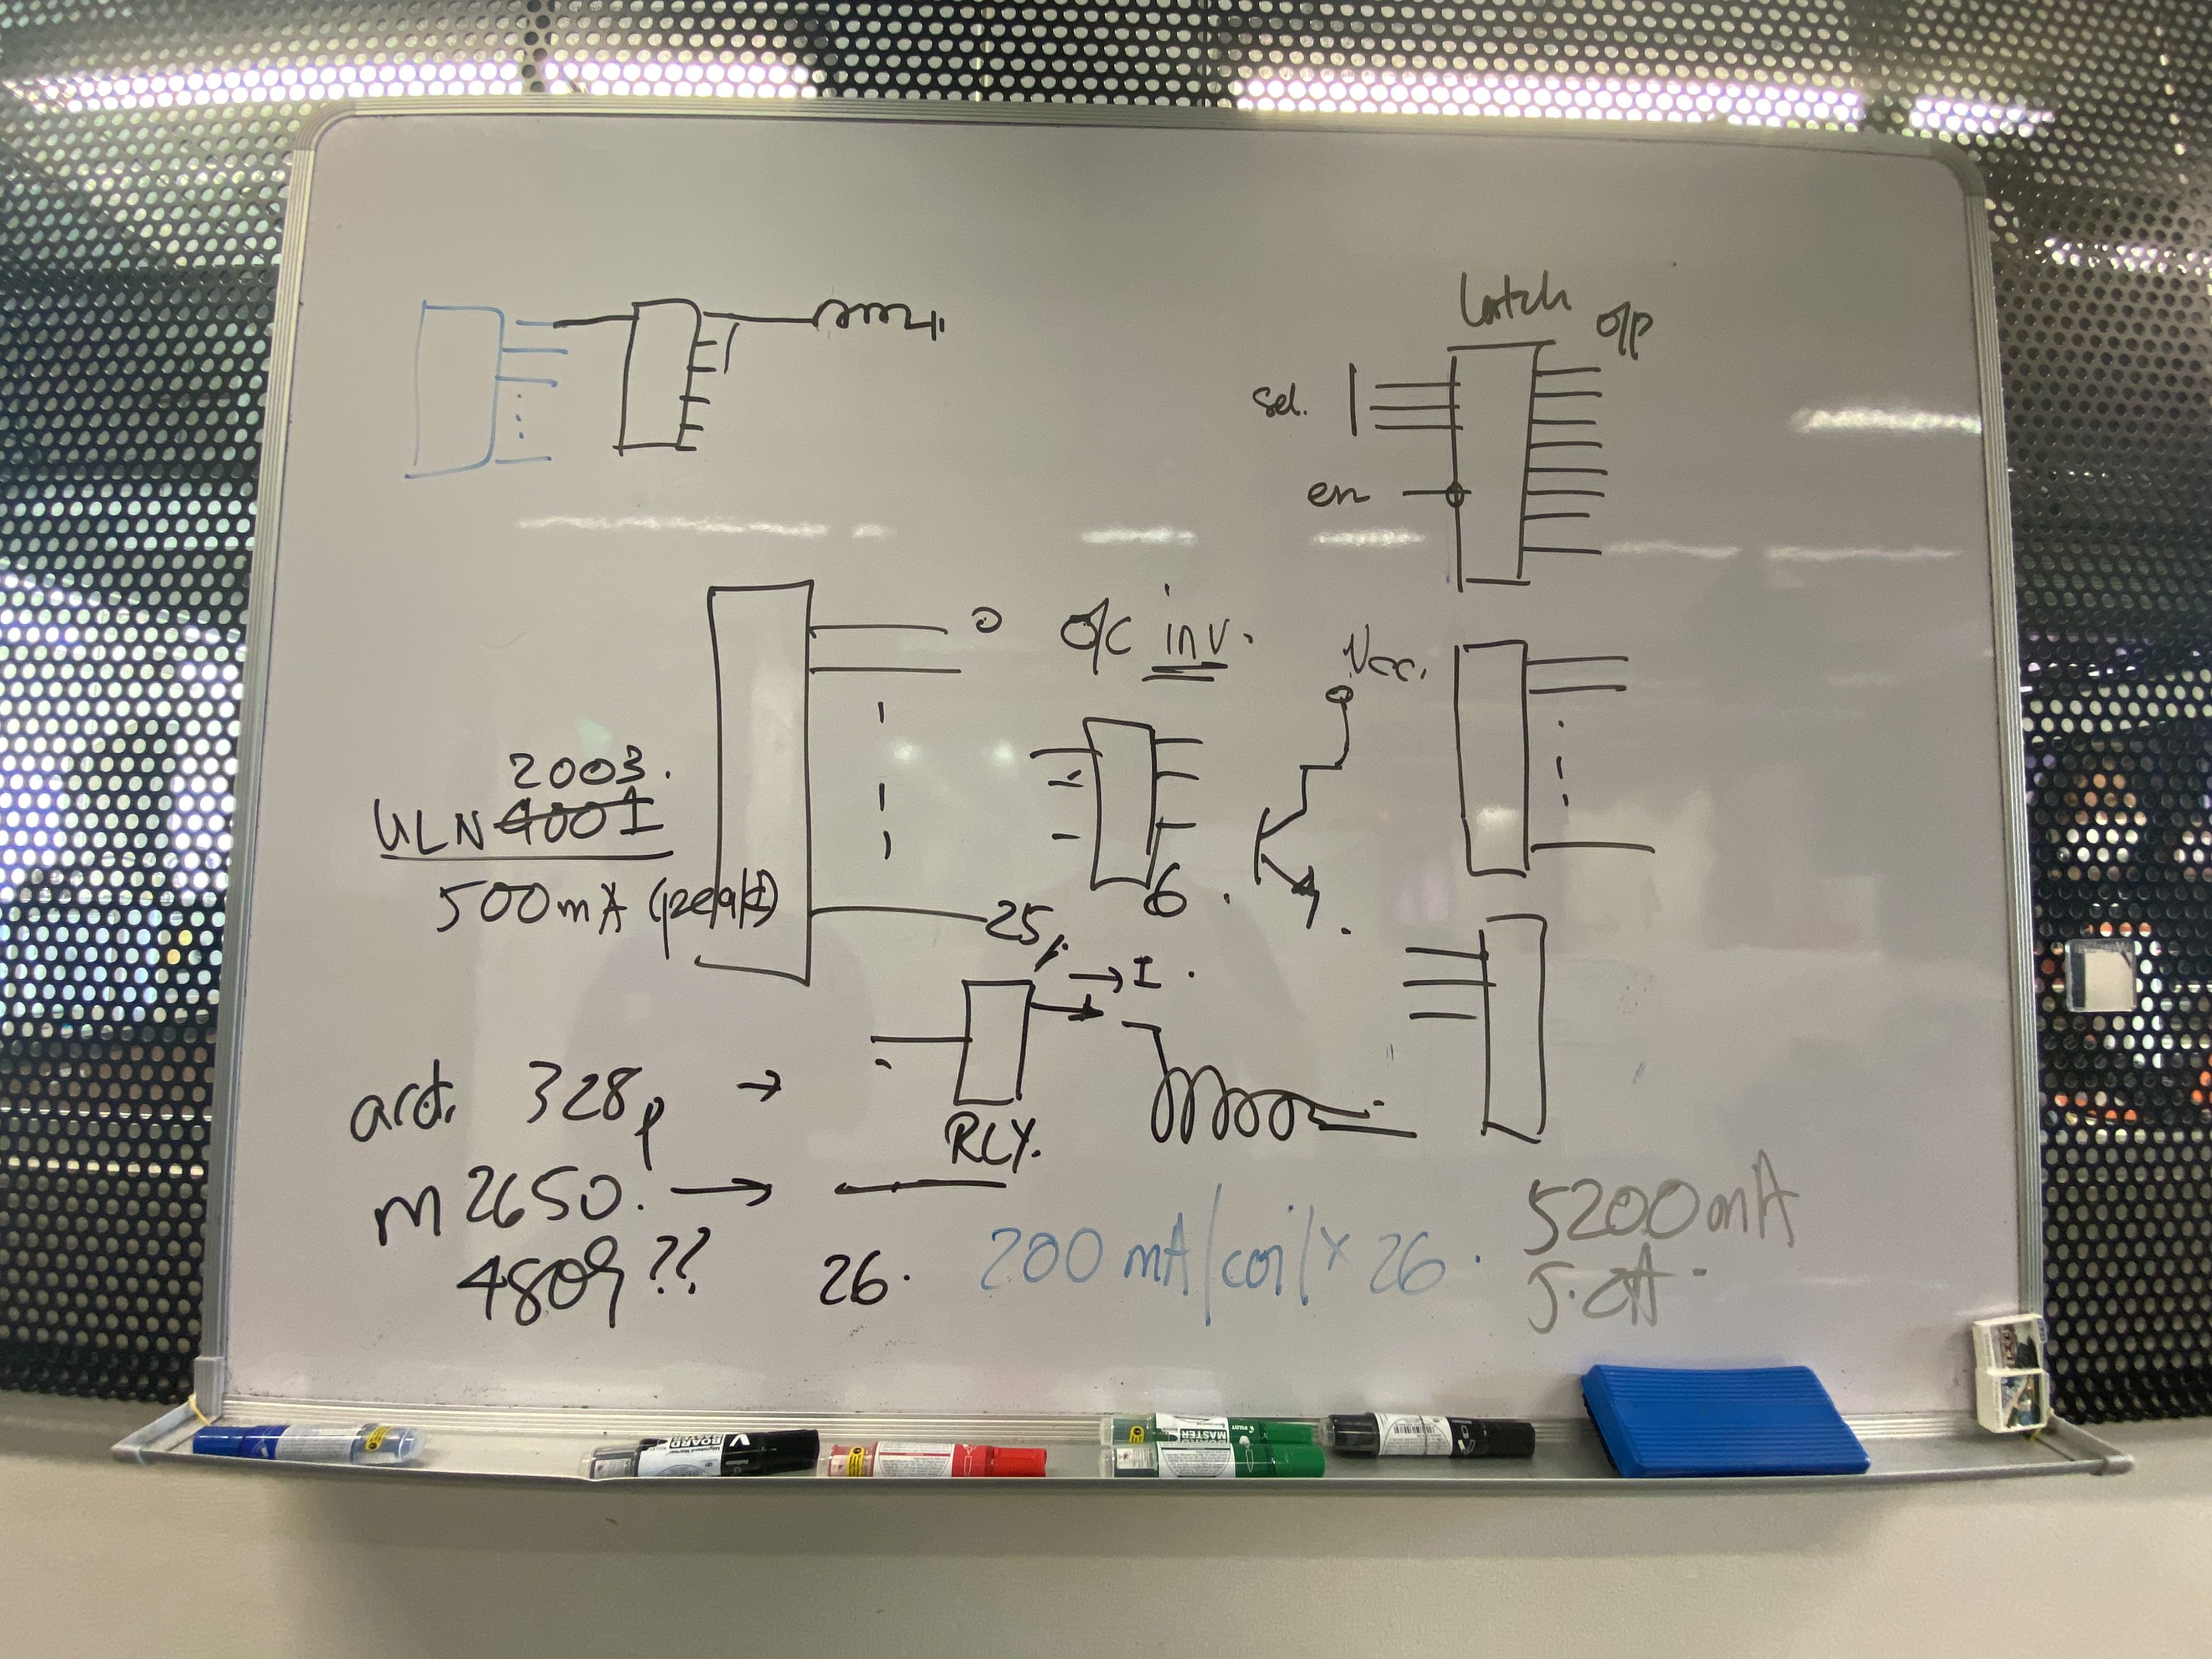 Latch
o/p
sel.
en
0
O/C inv.
Vcc.
2003.
ULN 4001
500mA (peak)
6.
25,
→ I.
ard. 328p →
RLY.
m 2650. →
4809??
26.
200 mA/coil × 26.
5200mA
BOARD MASTER
PILOT
MASTER